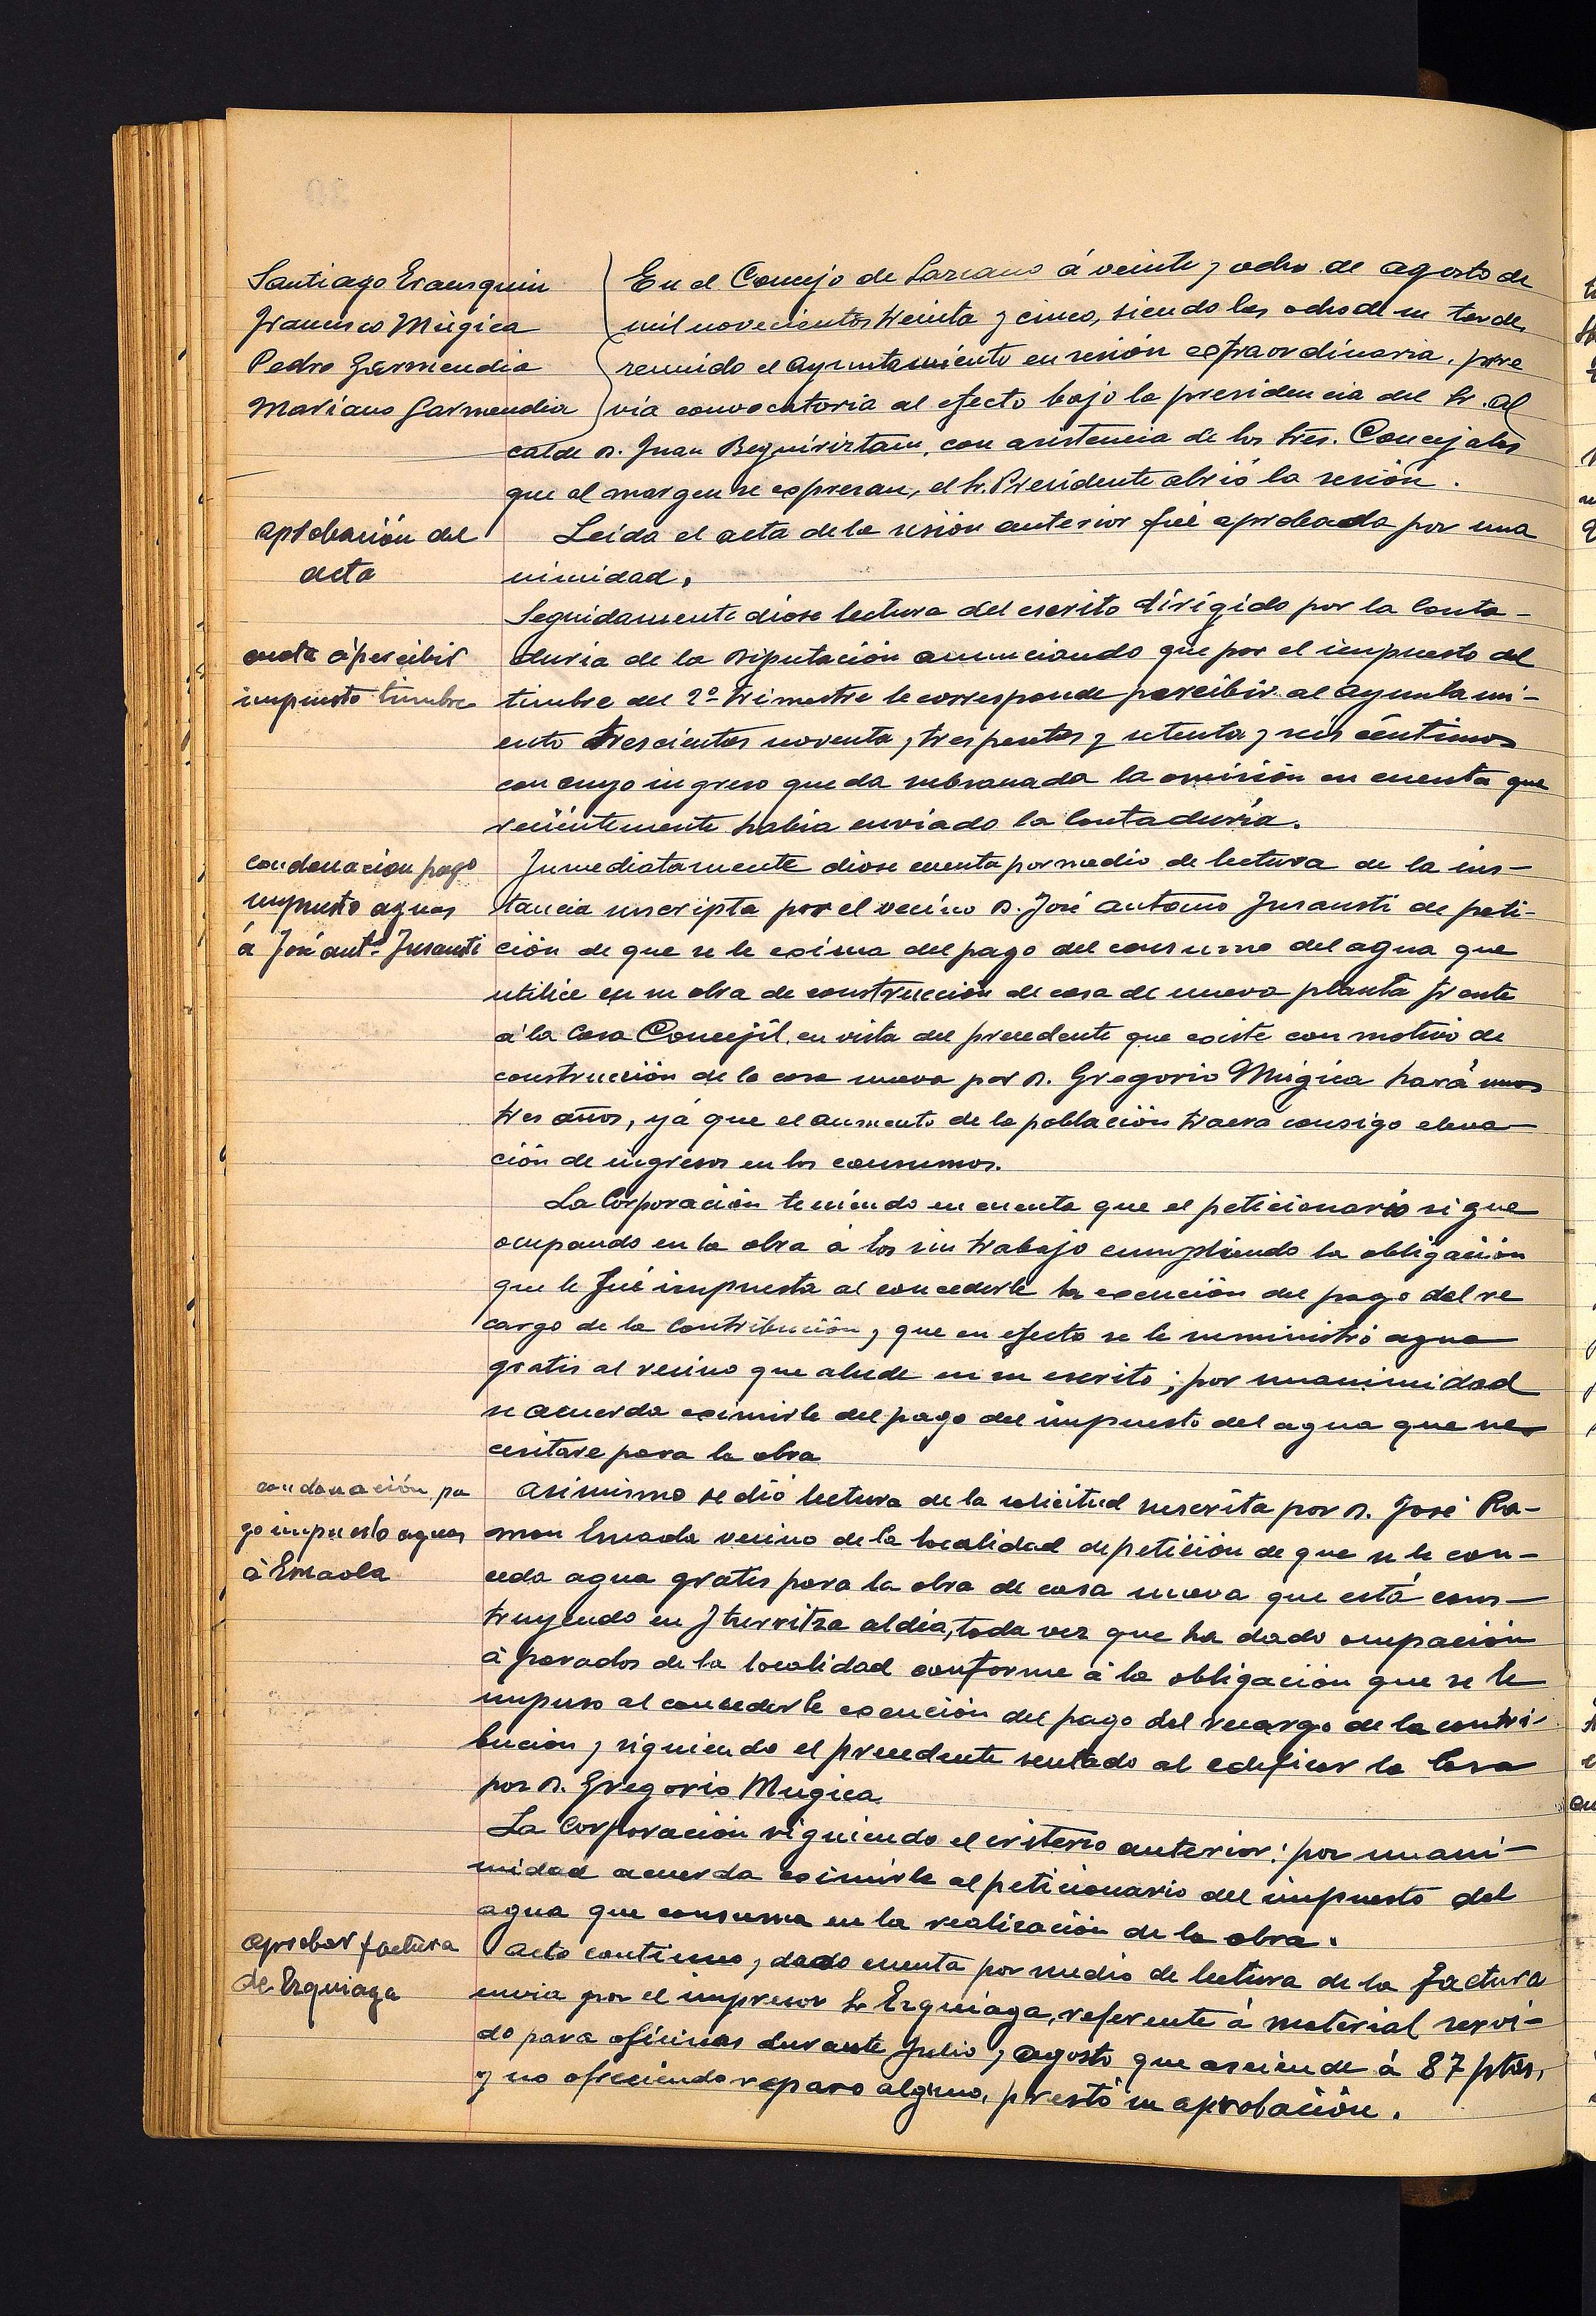 Santiago Erausquin
Francisco Múgica
Pedro Garmendia
Mariano Garmendia
En el Concejo de Lazcano á veinte y ocho de agosto de
mil novecientos treinta y cinco, siendo las ocho de su tarde,
reunido el Ayuntamiento en sesión extraordinaria, pre
via convocatoria al efecto bajo la presidencia del Sr. Al
calde D. Juan Beguiristain, con asistencia de los Sres. Concejales
que al margen se expresan, el Sr. Presidente abrió la sesión.
aprobación del
acta
Leída el acta de la sesión anterior fué aprobada por una
nimidad.
cuota á percibir
impuesto timbre
Seguidamente dióse lectura del escrito dirigido por la Conta-
duria de la Diputación anunciando que por el impuesto del
timbre del 2º trimestre le corresponde percibir al Ayuntami-
ento trescientas noventa y tres pesetas y setenta y seis céntimos
con cuyo ingreso queda subsanada la omisión en cuenta que
recientemente habia enviado la Contaduría.
condonacion pago
impuesto aguas
á José Antº Insausti
Inmediatamente dióse cuenta por medio de lectura de la ins-
tancia suscripta por el vecino D. José Antonio Insausti de peti-
ción de que se le exima del pago del consumo del agua que
utilice en su obra de construcción de casa de nueva planta frente
á la Casa Concejil, en vista del precedente que existe con motivo de
construcción de la casa nueva por D. Gregorio Múgica hará unos
tres años, yá que el aumento de la población traerá consigo eleva
ción de ingresos en los consumos.
La Corporación teniendo en cuenta que el peticionario sigue
ocupando en la obra á los sin trabajo cumpliendo la obligación
que le fué impuesta al concederle la exención del pago del re
cargo de la Contribución y que en efecto se le suministró agua
gratis al vecino que alude en su escrito; por unanimidad
se acuerda eximirle del pago del impuesto del agua que ne
cesitare para la obra
condonación pa
go impuesto aguas
á Emaola
Asimismo se dió lectura de la solicitud suscrita por D. José Ra-
mon Emaola vecino de la localidad de petición de que se le con-
ceda agua gratis para la obra de casa nueva que está cons-
truyendo en Iturritza aldia, toda vez que ha dado ocupación
á parados de la localidad conforme á la obligación que se le
impuso al concederle exención del pago del recargo de la contri-
bución y siguiendo el precedente sentado al edificar la Casa
por D. Gregorio Mugica
La Corporación siguiendo el criterio anterior: por unani-
midad acuerda eximirle al peticionario del impuesto del
agua que consuma en la realización de la obra.
aprobar factura
de Ezquiaga
Acto continuo, dado cuenta por medio de lectura de la factura
envia por el impresor Sr Ezquiaga, referente á material servi-
do para oficinas durante Julio y Agosto que asciende á 87 ptas,
y no ofreciendo reparo alguno, prestó su aprobación.